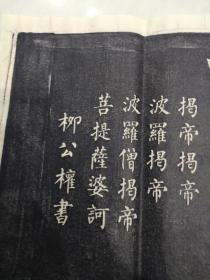 揭帝揭帝
波羅揭帝
波羅僧揭帝
菩提薩婆訶
柳公權書